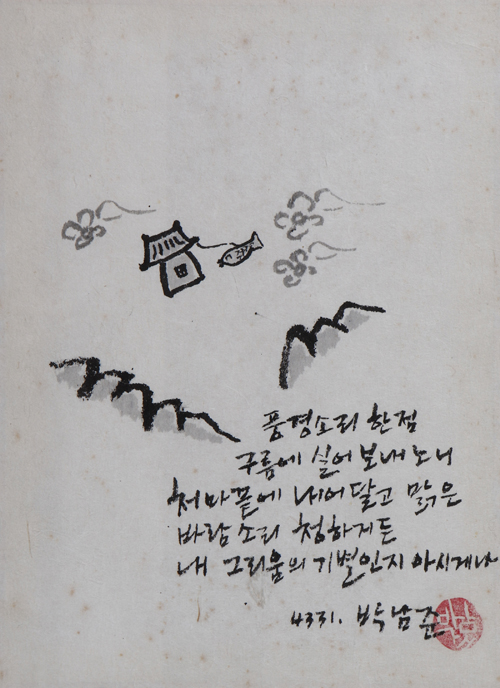 풍경소리 한점
구름에 실어 보내노니
처마끝에 내어달고 맑은
바람소리 청하거든
내 그리움의 기별인지 아시게나
4331. 박남준